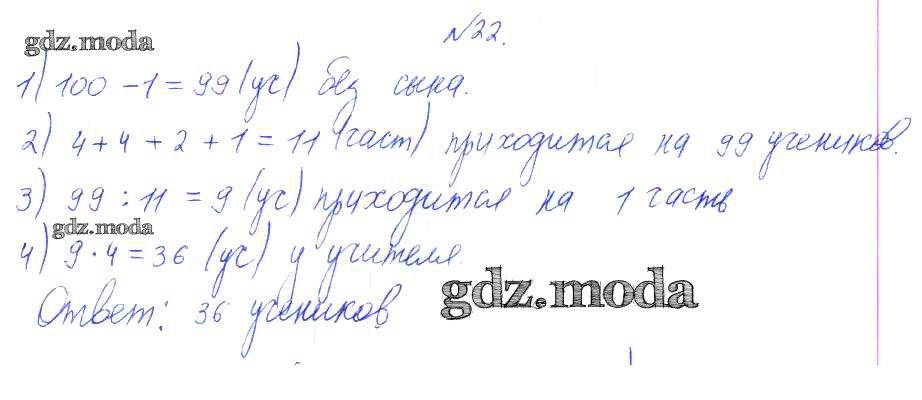 №22.
gdz.moda
1) 100 - 1 = 99 (уч) без сына.
2) 4 + 4 + 2 + 1 = 11 (част) приходится на 99 учеников.
3) 99 : 11 = 9 (уч) приходится на 1 часть
gdz.moda
4) 9 · 4 = 36 (уч) у учителя.
Ответ: 36 учеников
gdz.moda